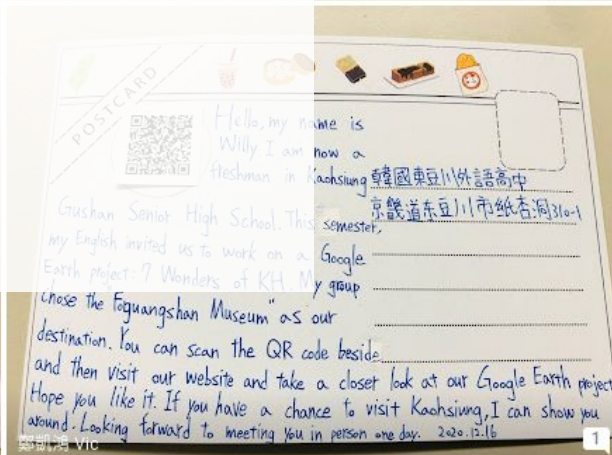 POSTCARD
Hello, my name is
Willy. I am now a
freshman in Kaohsiung
Gushan Senior High School. This semester,
my English invited us to work on a Google
Earth project: 7 Wonders of KH. My group
chose the "Foguangshan Museum" as our
destination. You can scan the QR code beside
and then visit our website and take a closer look at our Google Earth project
Hope you like it. If you have a chance to visit Kaohsiung, I can show you
around. Looking forward to meeting you in person one day. 2020.12.16
韓國東豆川外語高中
京畿道东豆川市纸杏洞310-1
鄭凱鴻 Vic
1